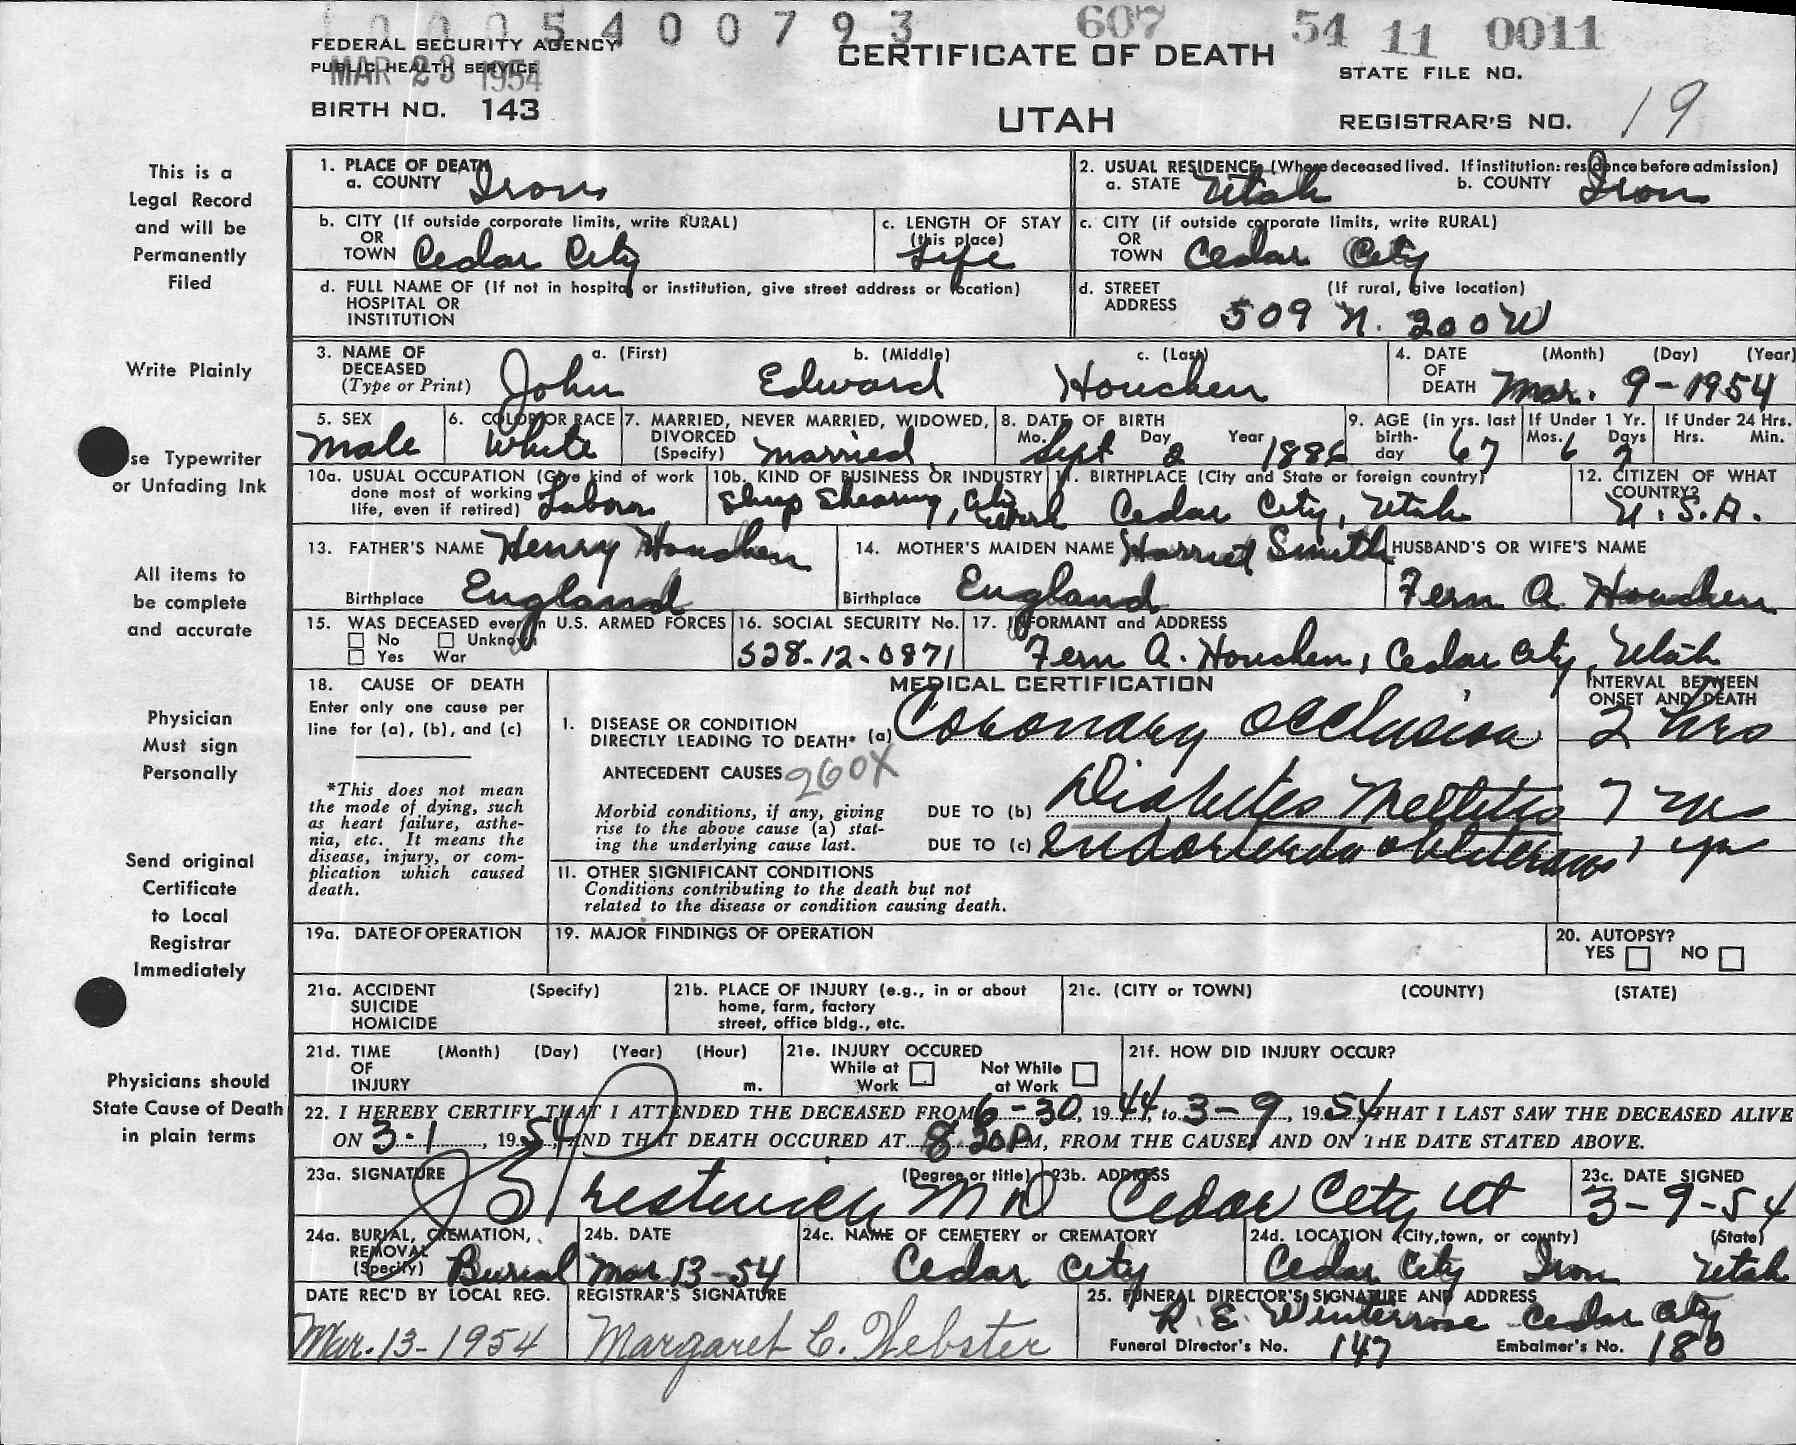 0005400793 607 54 11 0011
FEDERAL SECURITY AGENCY
PUBLIC HEALTH SERVICE
MAR 23 1954
CERTIFICATE OF DEATH
STATE FILE NO.
BIRTH NO. 143
UTAH
REGISTRAR'S NO. 19
This is a
Legal Record
and will be
Permanently
Filed
Write Plainly
se Typewriter
or Unfading Ink
All items to
be complete
and accurate
Physician
Must sign
Personally
Send original
Certificate
to Local
Registrar
Immediately
Physicians should
State Cause of Death
in plain terms
1. PLACE OF DEATH
a. COUNTY Iron
2. USUAL RESIDENCE (Where deceased lived. If institution: residence before admission)
a. STATE Utah b. COUNTY Iron
b. CITY (If outside corporate limits, write RURAL)
OR
TOWN Cedar City
c. LENGTH OF STAY
(this place)
Life
c. CITY (if outside corporate limits, write RURAL)
OR
TOWN Cedar City
d. FULL NAME OF (If not in hospital or institution, give street address or location)
HOSPITAL OR
INSTITUTION
d. STREET (If rural, give location)
ADDRESS 509 N. 200 W
3. NAME OF DECEASED (Type or Print)
a. (First) b. (Middle) c. (Last)
John Edward Houchen
4. DATE OF DEATH (Month) (Day) (Year)
Mar. 9-1954
5. SEX
Male
6. COLOR OR RACE
White
7. MARRIED, NEVER MARRIED, WIDOWED,
DIVORCED
(Specify) Married
8. DATE OF BIRTH
Mo. Day Year
Sept 2 1886
9. AGE (in yrs. last birth-day 67
If Under 1 Yr.
Mos. 6 Days
If Under 24 Hrs.
Hrs. Min.
10a. USUAL OCCUPATION (Give kind of work
done most of working
life, even if retired) Labor
10b. KIND OF BUSINESS OR INDUSTRY
Sheep Shearing, City Work
11. BIRTHPLACE (City and State or foreign country)
Cedar City, Utah
12. CITIZEN OF WHAT
COUNTRY?
U.S.A.
13. FATHER'S NAME Henry Houchen
Birthplace England
14. MOTHER'S MAIDEN NAME Harriet Smith
Birthplace England
HUSBAND'S OR WIFE'S NAME
Fern A. Houchen
15. WAS DECEASED ever in U.S. ARMED FORCES
No Unknown
Yes War
16. SOCIAL SECURITY No.
528-12-0871
17. INFORMANT and ADDRESS
Fern A. Houchen, Cedar City, Utah
18. CAUSE OF DEATH
Enter only one cause per
line for (a), (b), and (c)
*This does not mean
the mode of dying, such
as heart failure, asthe-
nia, etc. It means the
disease, injury, or com-
plication which caused
death.
MEDICAL CERTIFICATION
INTERVAL BETWEEN
ONSET AND DEATH
1. DISEASE OR CONDITION
DIRECTLY LEADING TO DEATH* (a) Coronary Occlusion 2 hrs
ANTECEDENT CAUSES 260X
Morbid conditions, if any, giving
rise to the above cause (a) stat-
ing the underlying cause last.
DUE TO (b) Diabetes Mellitus 7 yrs
DUE TO (c) Endarteritis obliterans yrs
II. OTHER SIGNIFICANT CONDITIONS
Conditions contributing to the death but not
related to the disease or condition causing death.
19a. DATE OF OPERATION
19. MAJOR FINDINGS OF OPERATION
20. AUTOPSY?
YES NO
21a. ACCIDENT (Specify)
SUICIDE
HOMICIDE
21b. PLACE OF INJURY (e.g., in or about
home, farm, factory
street, office bldg., etc.
21c. (CITY or TOWN) (COUNTY) (STATE)
21d. TIME (Month) (Day) (Year) (Hour)
OF
INJURY m.
21e. INJURY OCCURED
While at Work Not While at Work
21f. HOW DID INJURY OCCUR?
22. I HEREBY CERTIFY THAT I ATTENDED THE DECEASED FROM 6-30, 1944, to 3-9, 1954 THAT I LAST SAW THE DECEASED ALIVE
ON 3-1, 1954 AND THAT DEATH OCCURED AT 8 20 P.M, FROM THE CAUSES AND ON THE DATE STATED ABOVE.
23a. SIGNATURE (Degree or title)
Prestwich M D
23b. ADDRESS
Cedar City Ut
23c. DATE SIGNED
3-9-54
24a. BURIAL, CREMATION,
REMOVAL
(Specify) Burial
24b. DATE
Mar 13-54
24c. NAME OF CEMETERY or CREMATORY
Cedar City
24d. LOCATION (City, town, or county) (State)
Cedar City Iron Utah
DATE REC'D BY LOCAL REG.
Mar. 13-1954
REGISTRAR'S SIGNATURE
Margaret C. Webster
25. FUNERAL DIRECTOR'S SIGNATURE AND ADDRESS
R. E. Winterrose Cedar City
Funeral Director's No. 147 Embalmer's No. 180